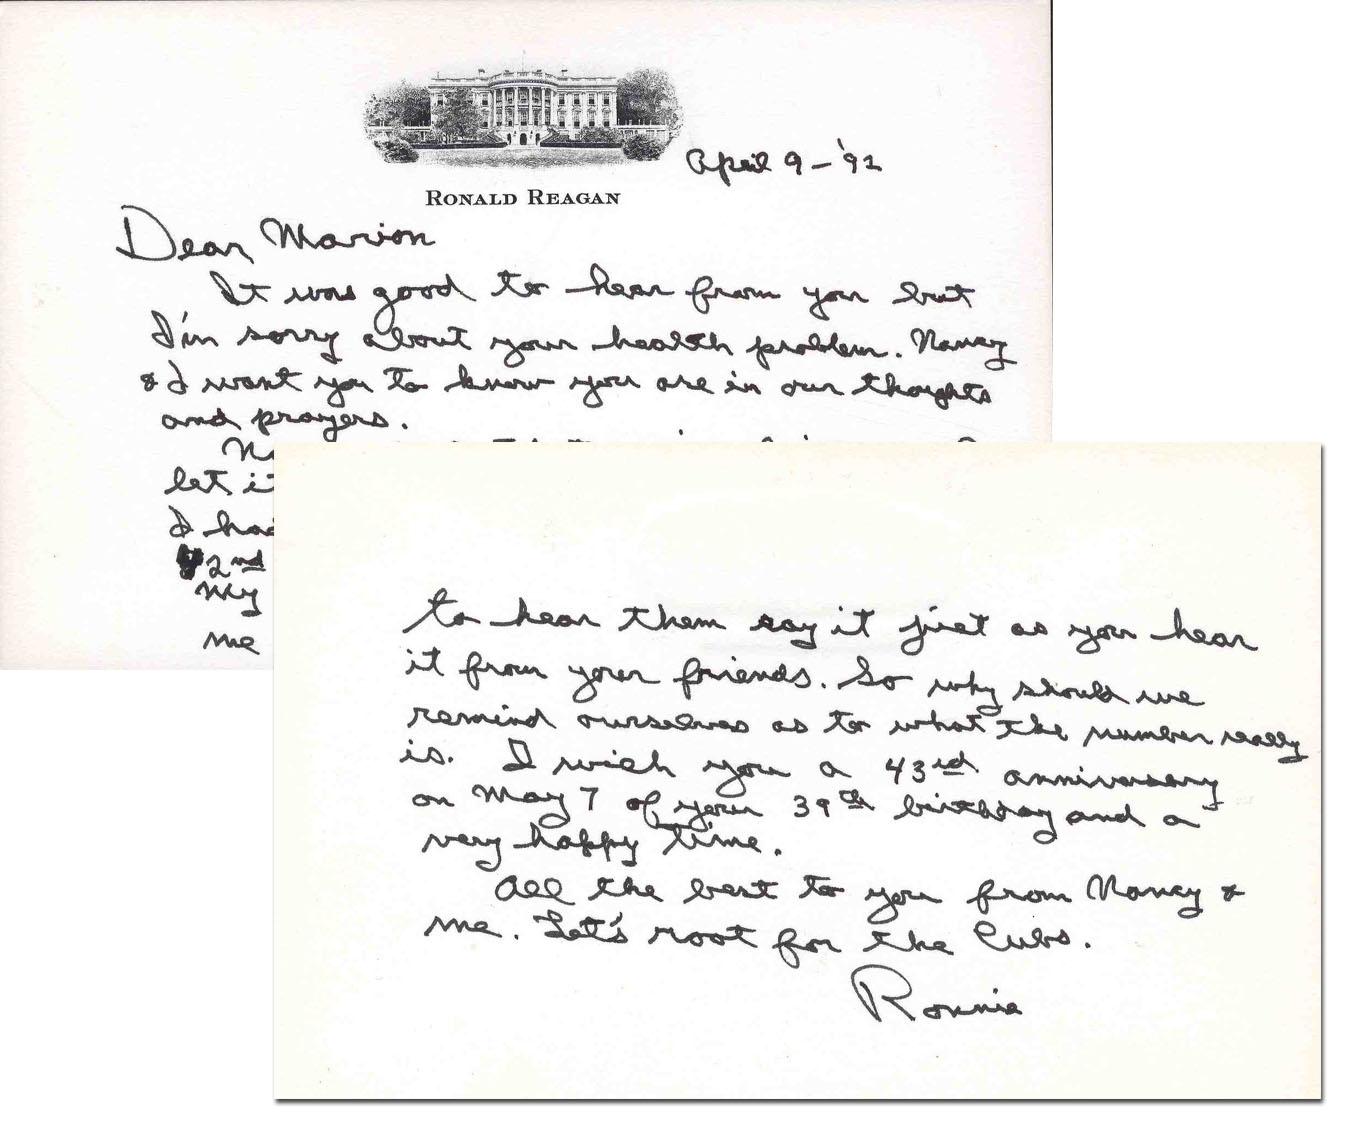 April 9 – '92
RONALD REAGAN
Dear Marion
It was good to hear from you but
I'm sorry about your health problem. Nancy
& I want you to know you are in our thoughts
and prayers.
let it
I had
2nd
My
me
to hear them say it just as you hear
it from your friends. So why should we
remind ourselves as to what the number really
is. I wish you a 43rd anniversary
on May 7 of your 39th birthday and a
very happy time.
All the best to you from Nancy &
me. Let's root for the Cubs.
Ronnie